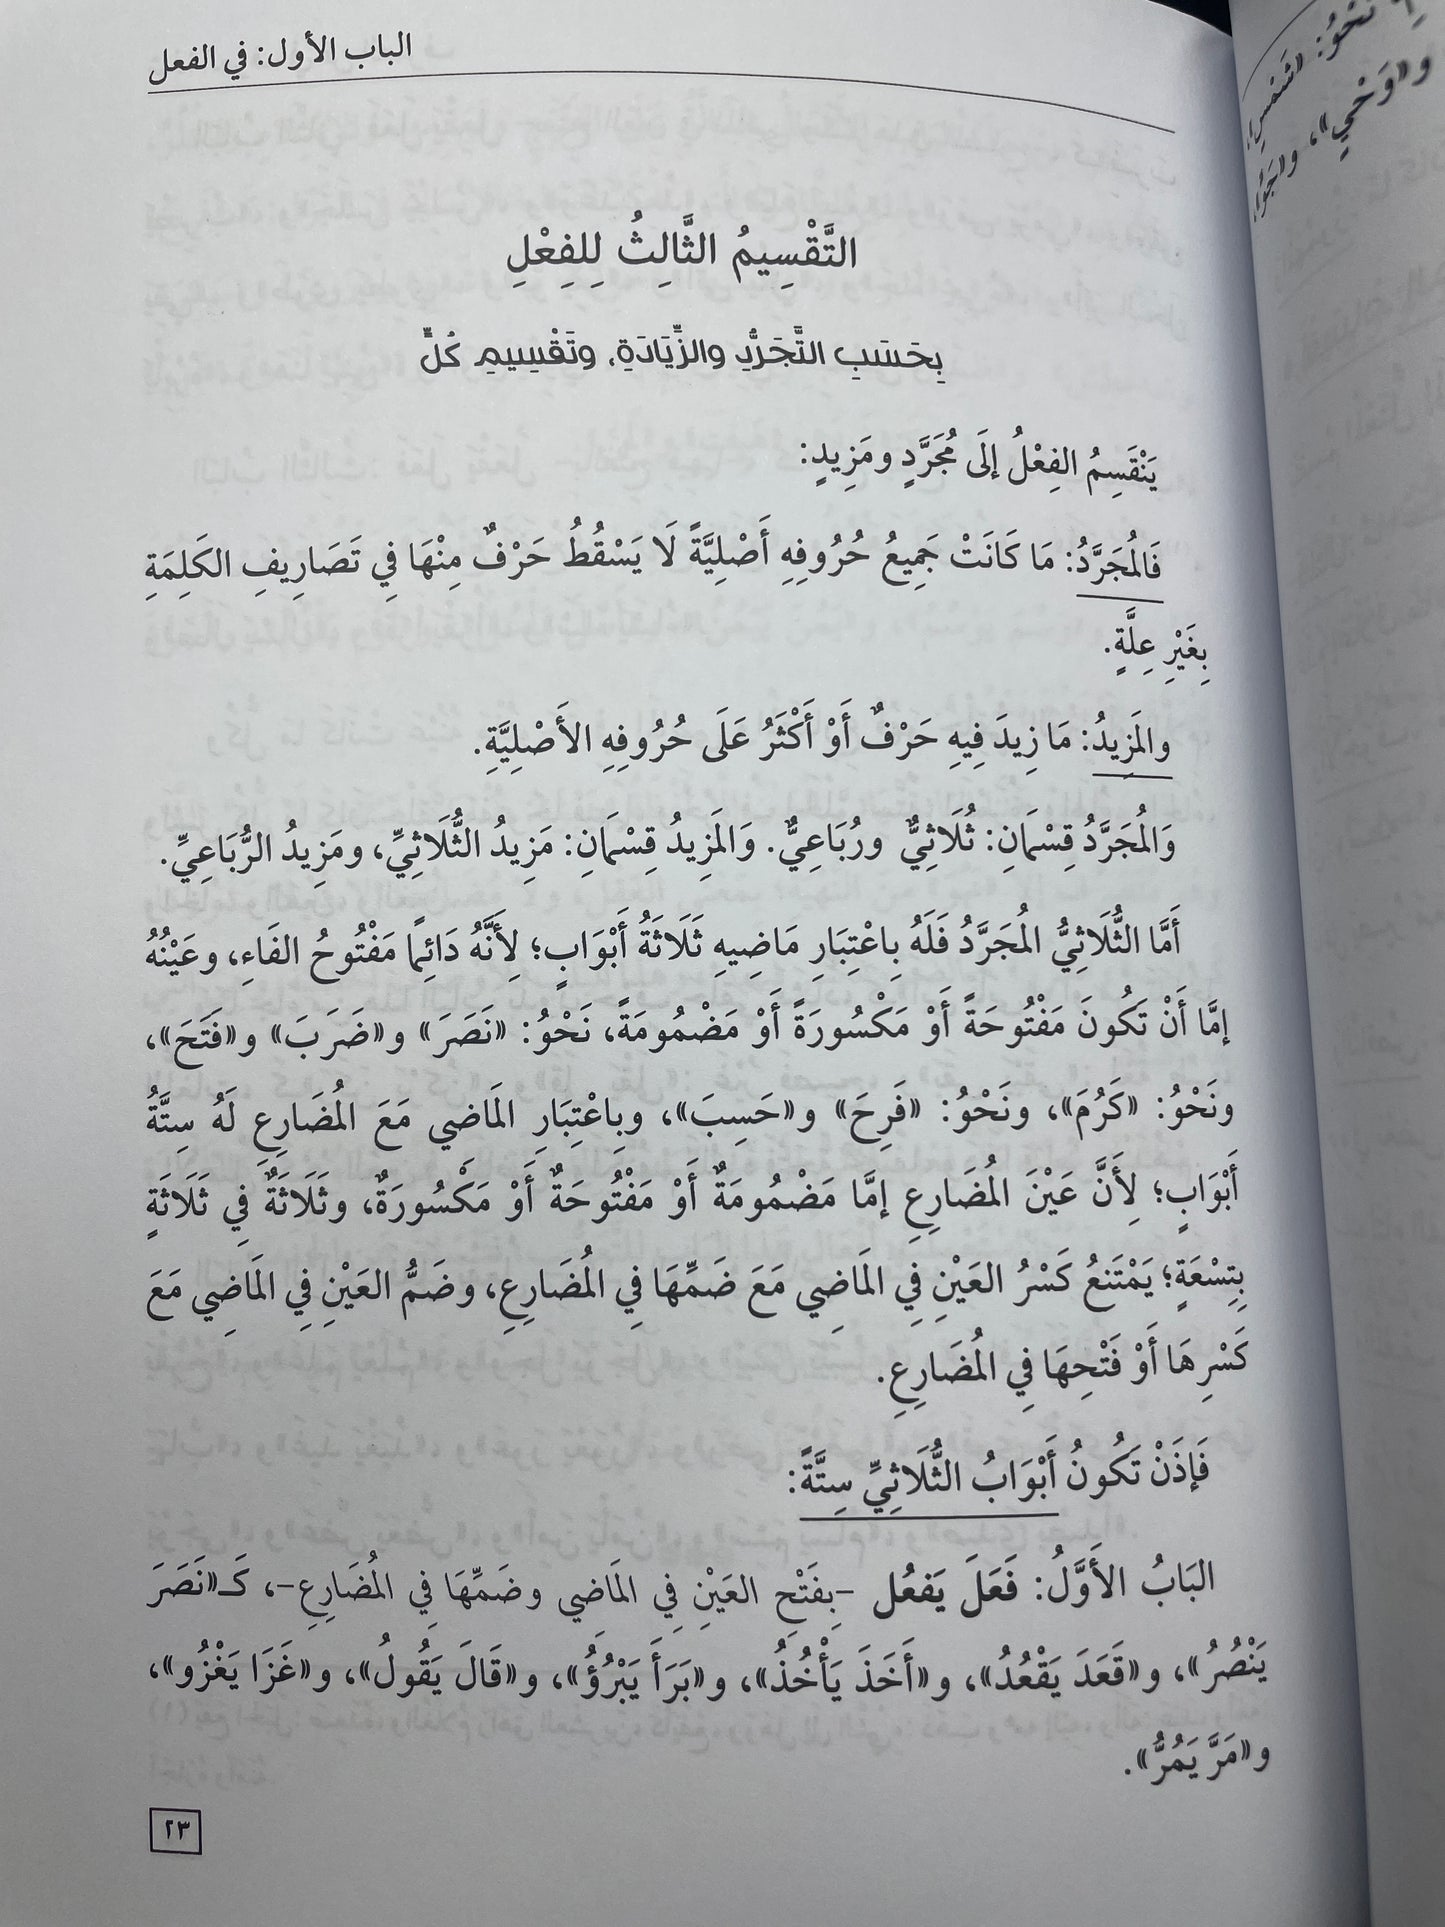 الباب الأول: في الفعل
التَّقْسِيمُ الثَّالِثُ لِلفِعْلِ
بِحَسَبِ التَّجَرُّدِ والزِّيَادَةِ، وتَقْسِيمِ كُلٍّ
يَنْقَسِمُ الفِعْلُ إلَى مُجَرَّدٍ ومَزِيدٍ:
فَالمُجَرَّدُ: مَا كَانَتْ جَمِيعُ حُرُوفِهِ أَصْلِيَّةً لَا يَسْقُطُ حَرْفٌ مِنْهَا فِي تَصَارِيفِ الكَلِمَةِ
بِغَيْرِ عِلَّةٍ.
والمَزِيدُ: مَا زِيدَ فِيهِ حَرْفٌ أَوْ أَكْثَرُ عَلَى حُرُوفِهِ الأَصْلِيَّةِ.
وَالمُجَرَّدُ قِسْمَانِ: ثُلَاثِيٌّ ورُبَاعِيٌّ. وَالمَزِيدُ قِسْمَانِ: مَزِيدُ الثُّلَاثِيِّ، ومَزِيدُ الرُّبَاعِيِّ.
أَمَّا الثُّلَاثِيُّ المُجَرَّدُ فَلَهُ بِاعْتِبَارِ مَاضِيهِ ثَلَاثَةُ أَبْوَابٍ؛ لِأَنَّهُ دَائِمًا مَفْتُوحُ الفَاءِ، وعَيْنُهُ
إمَّا أَنْ تَكُونَ مَفْتُوحَةً أَوْ مَكْسُورَةً أَوْ مَضْمُومَةً، نَحْوُ: «نَصَرَ» و«ضَرَبَ» و«فَتَحَ»،
ونَحْوُ: «كَرُمَ»، ونَحْوُ: «فَرِحَ» و«حَسِبَ»، وبِاعْتِبَارِ المَاضي مَعَ المُضَارِعِ لَهُ سِتَّةُ
أَبْوَابٍ؛ لِأَنَّ عَيْنَ المُضَارِعِ إمَّا مَضْمُومَةٌ أَوْ مَفْتُوحَةٌ أَوْ مَكْسُورَةٌ، وثَلَاثَةٌ فِي ثَلَاثَةٍ
بِتِسْعَةٍ؛ يَمْتَنعُ كَسْرُ العَيْنِ فِي المَاضِي مَعَ ضَمِّهَا فِي المُضَارِعِ، وضَمُّ العَيْنِ فِي المَاضِي مَعَ
كَسْرِهَا أَوْ فَتْحِهَا فِي المُضَارِعِ.
فَإذَنْ تَكُونُ أَبْوَابُ الثُّلَاثِيِّ سِتَّةً:
البَابُ الأَوَّلُ: فَعَلَ يَفعُل -بِفَتْحِ العَيْنِ فِي المَاضي وضَمِّهَا فِي المُضَارِعِ-، كَـ«نَصَرَ
يَنْصُرُ»، و«قَعَدَ يَقْعُدُ»، و«أَخَذَ يَأْخُذُ»، و«بَرَأَ يَبْرُؤُ»، و«قَالَ يَقُولُ»، و«غَزَا يَغْزُو»،
و«مَرَّ يَمُرُّ».
٢٣
نَحْوُ: «شَمْسٍ»،
و«وَحْيٍ»، و«جَوٍّ»،